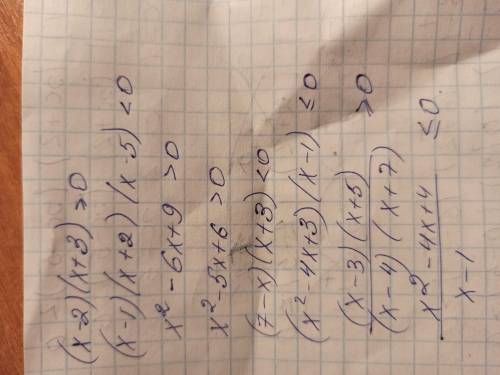 (x-2)(x+3) ≥ 0
(x-1)(x+2)(x-5) < 0
x² - 6x + 9 > 0
x² - 5x + 6 > 0
(7-x)(x+3) < 0
(x² - 4x + 3)(x-1) ≤ 0
(x-3)(x+5)
(x-4)(x+7) ≥ 0
x² - 4x + 4
x-1 ≤ 0.